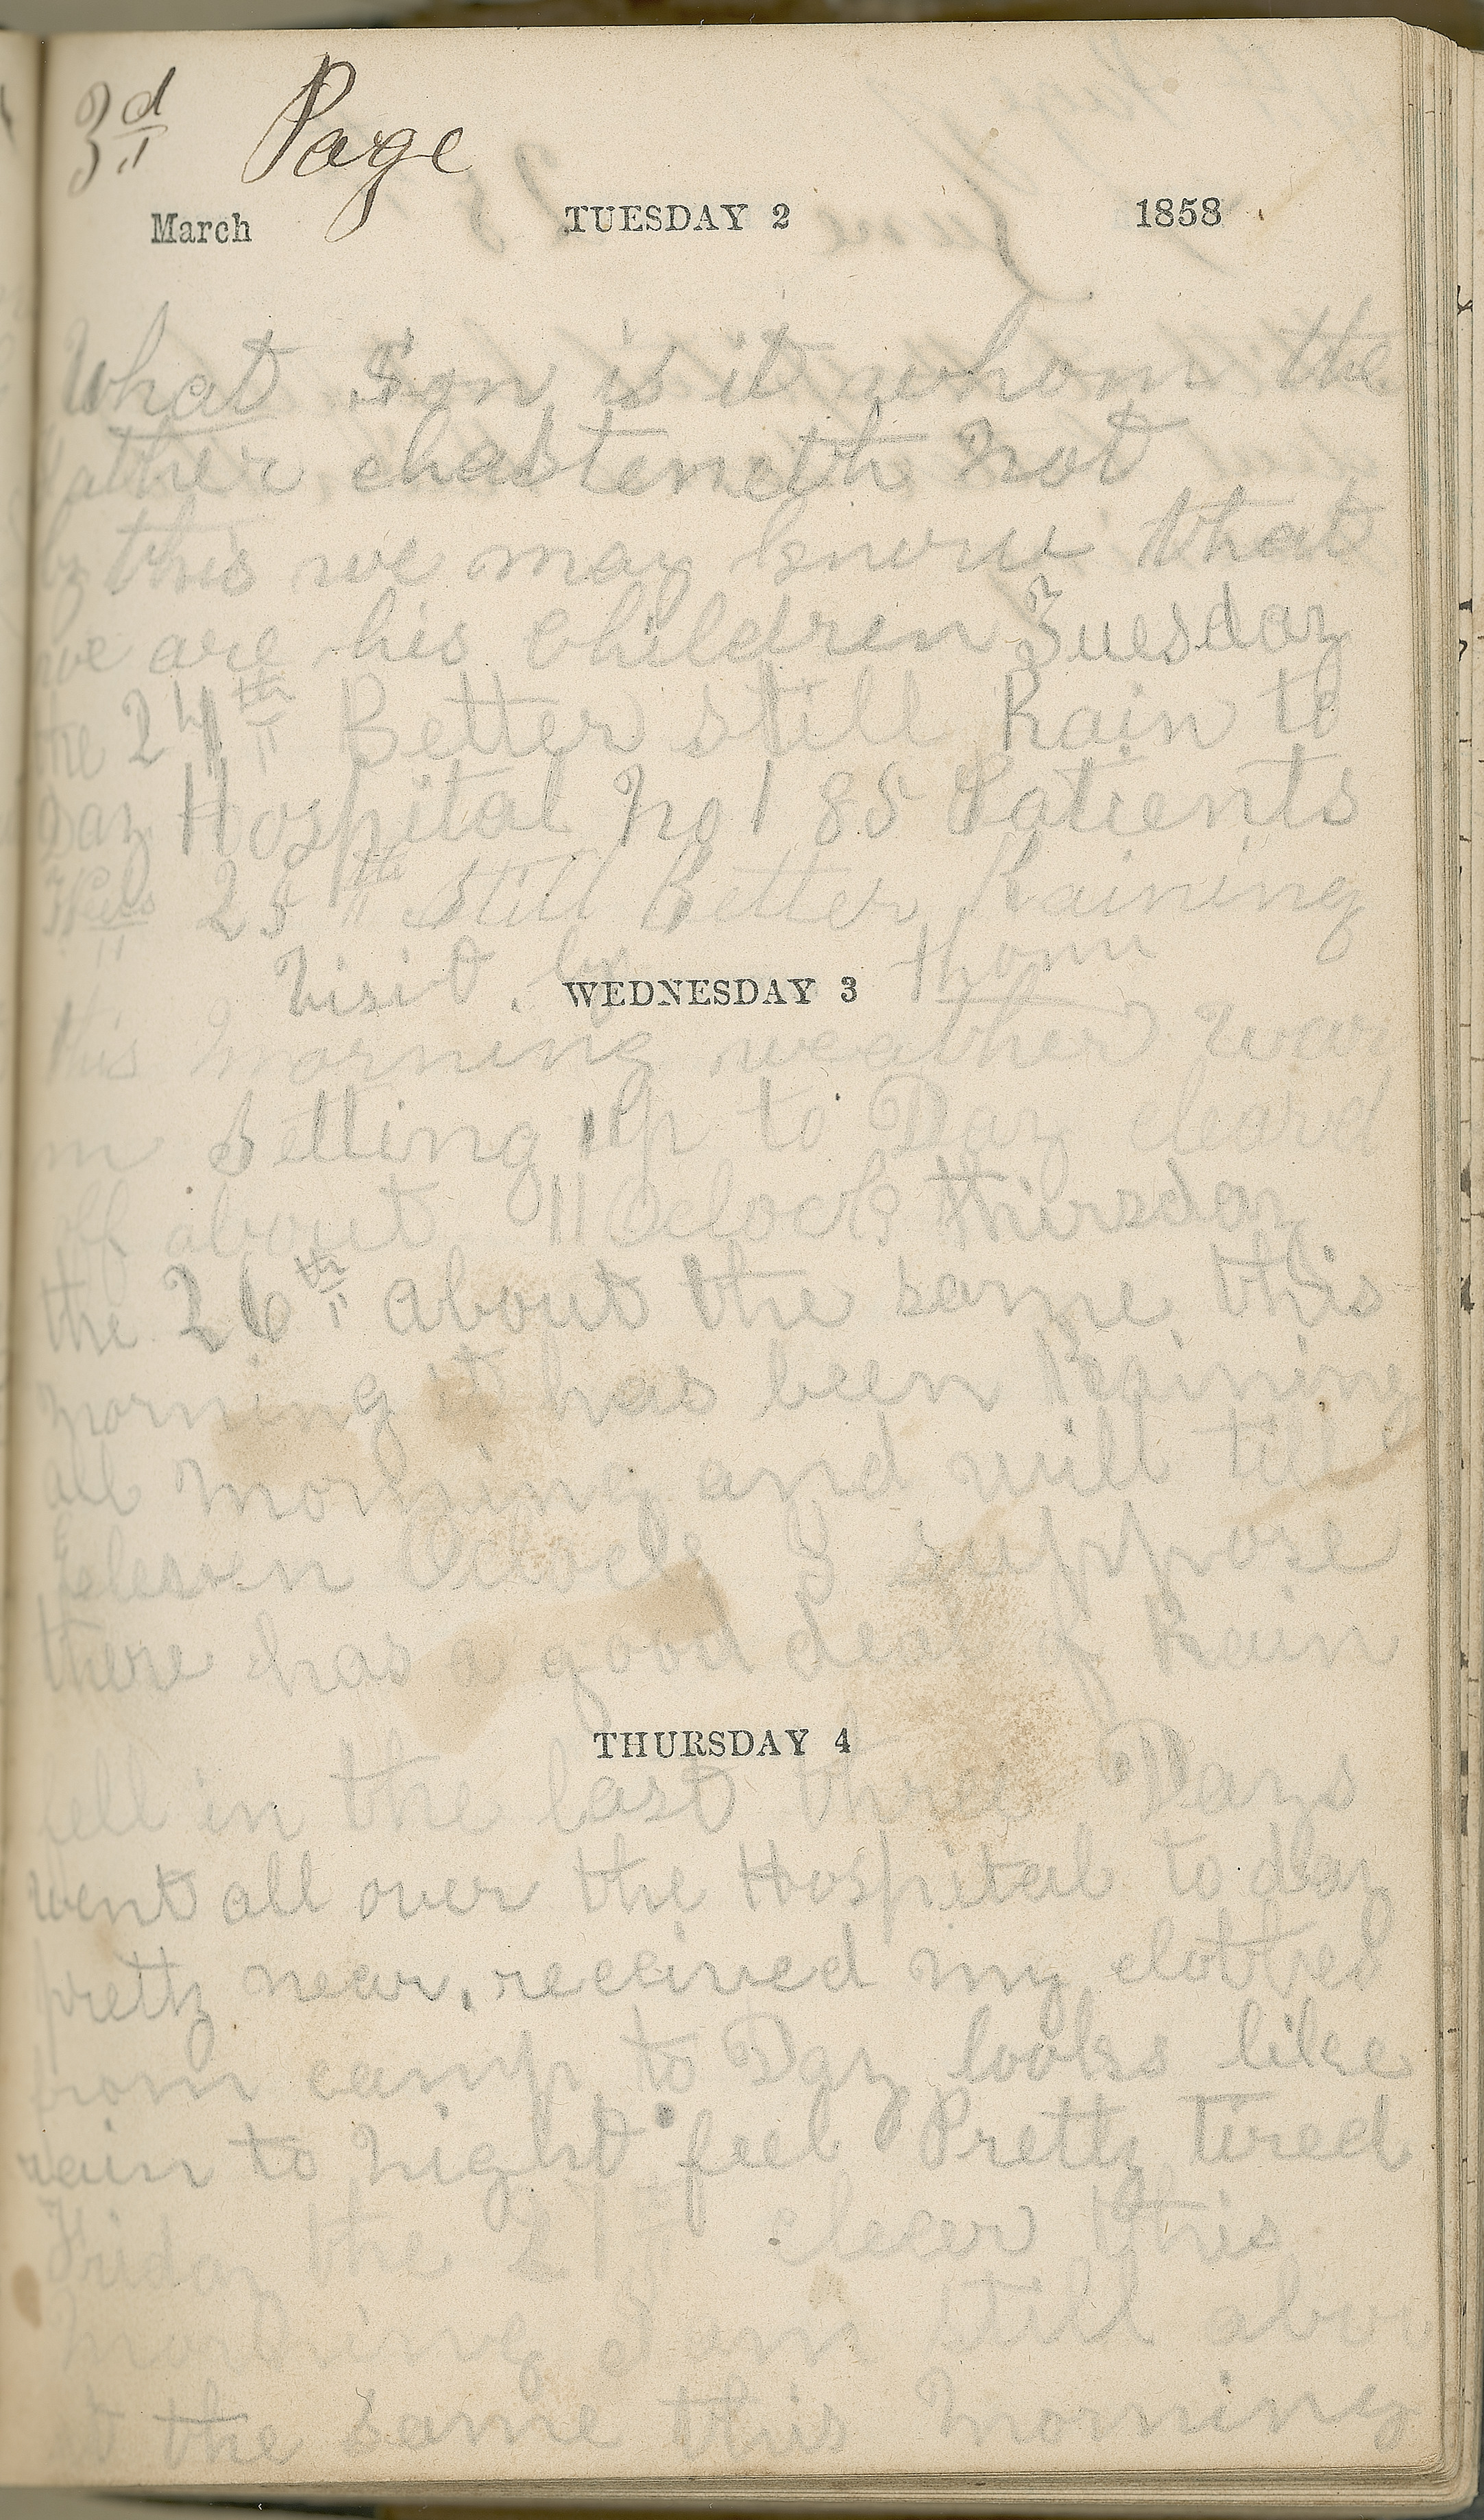 3d Page
March TUESDAY 2 1858
What Son is it whom the
father chasteneth not
by this we may know that
we are his children Tuesday
the 24th Better still Rain to
Day Hospital No 1 88 Patients
25th Still Better Raining
visit by thom
WEDNESDAY 3
this morning weather war
m Setting up to Day cleard
off about 11 Oclock thirsday
the 26th about the same this
morning it has been Raining
all morning and will till
Eleven Oclock I suppose
there has a good deal of Rain
THURSDAY 4
fell in the last three Days
went all over the Hospital to day
pretty near, received my clothes
from camp to Day looks like
rain to night feel Pretty tired
Friday the 27th clear this
morning I am still abou
t the same this morning